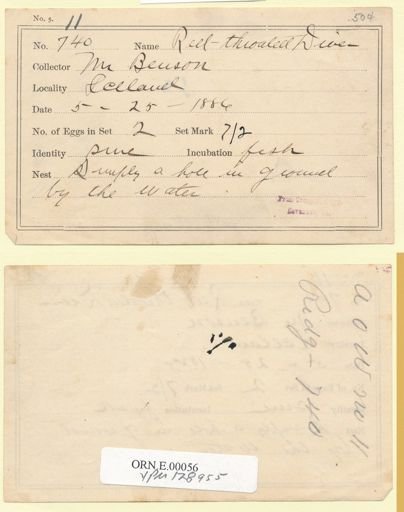 No. 5. 11
504
No. 740 Name Red-throated Diver
Collector Mr Benson
Locality Iceland
Date 5 - 25 - 1886
No. of Eggs in Set 2 Set Mark 7/2
Identity sure Incubation fresh
Nest Simply a hole in ground
by the water.
Ridg - 740
ORN.E.00056
YPM 128955